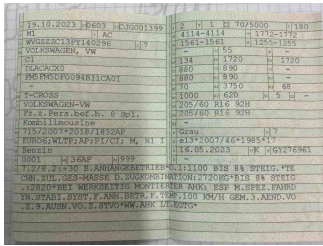 19.10.2023 0603 CJG001399
M1 AC
WVGZZZC13PY140296 7
VOLKSWAGEN, VW
C1
DLACACX0
FM5FM5DF0094BI1CA01
-
T-CROSS
VOLKSWAGEN-VW
Fz.z.Pers.bef.b. 8 Spl.
Kombilimousine
715/2007*2018/1832AP
EURO6;WLTP;AP;PI/CI; M, N1 I
Benzin
0001 36AP 999
2 1 70/5000 180
4114-4114 1772-1772
1561-1561 1255-1255
- 55 -
134 1720 1720
880 890 -
880 890 -
70 3750 68
1000 620 5 -
205/60 R16 92H
205/60 R16 92H
-
Grau 7
e13*2007/46*1985*17
16.05.2023 K GY276961
7.2/8.2:+30 B.ANHÄNGEBETRIEB*O.1:1100 BIS 8% STEIG.*TE
CHN.ZUL.GES-MASSE D.ZUGKOMBINATION:2720KG*BIS 8% STEIG
.:2820*BEI WERKSEITIG MONTIERTER AHK: ESP M.SPEZ.FAHRD
YN.STABI.SYST.F.ANH.BETR.F.TEMP.100 KM/H GEM.3.AEND.VO
Z.9.AUSN.VO.Z.STVO*WW.AHK LT.EGTG*